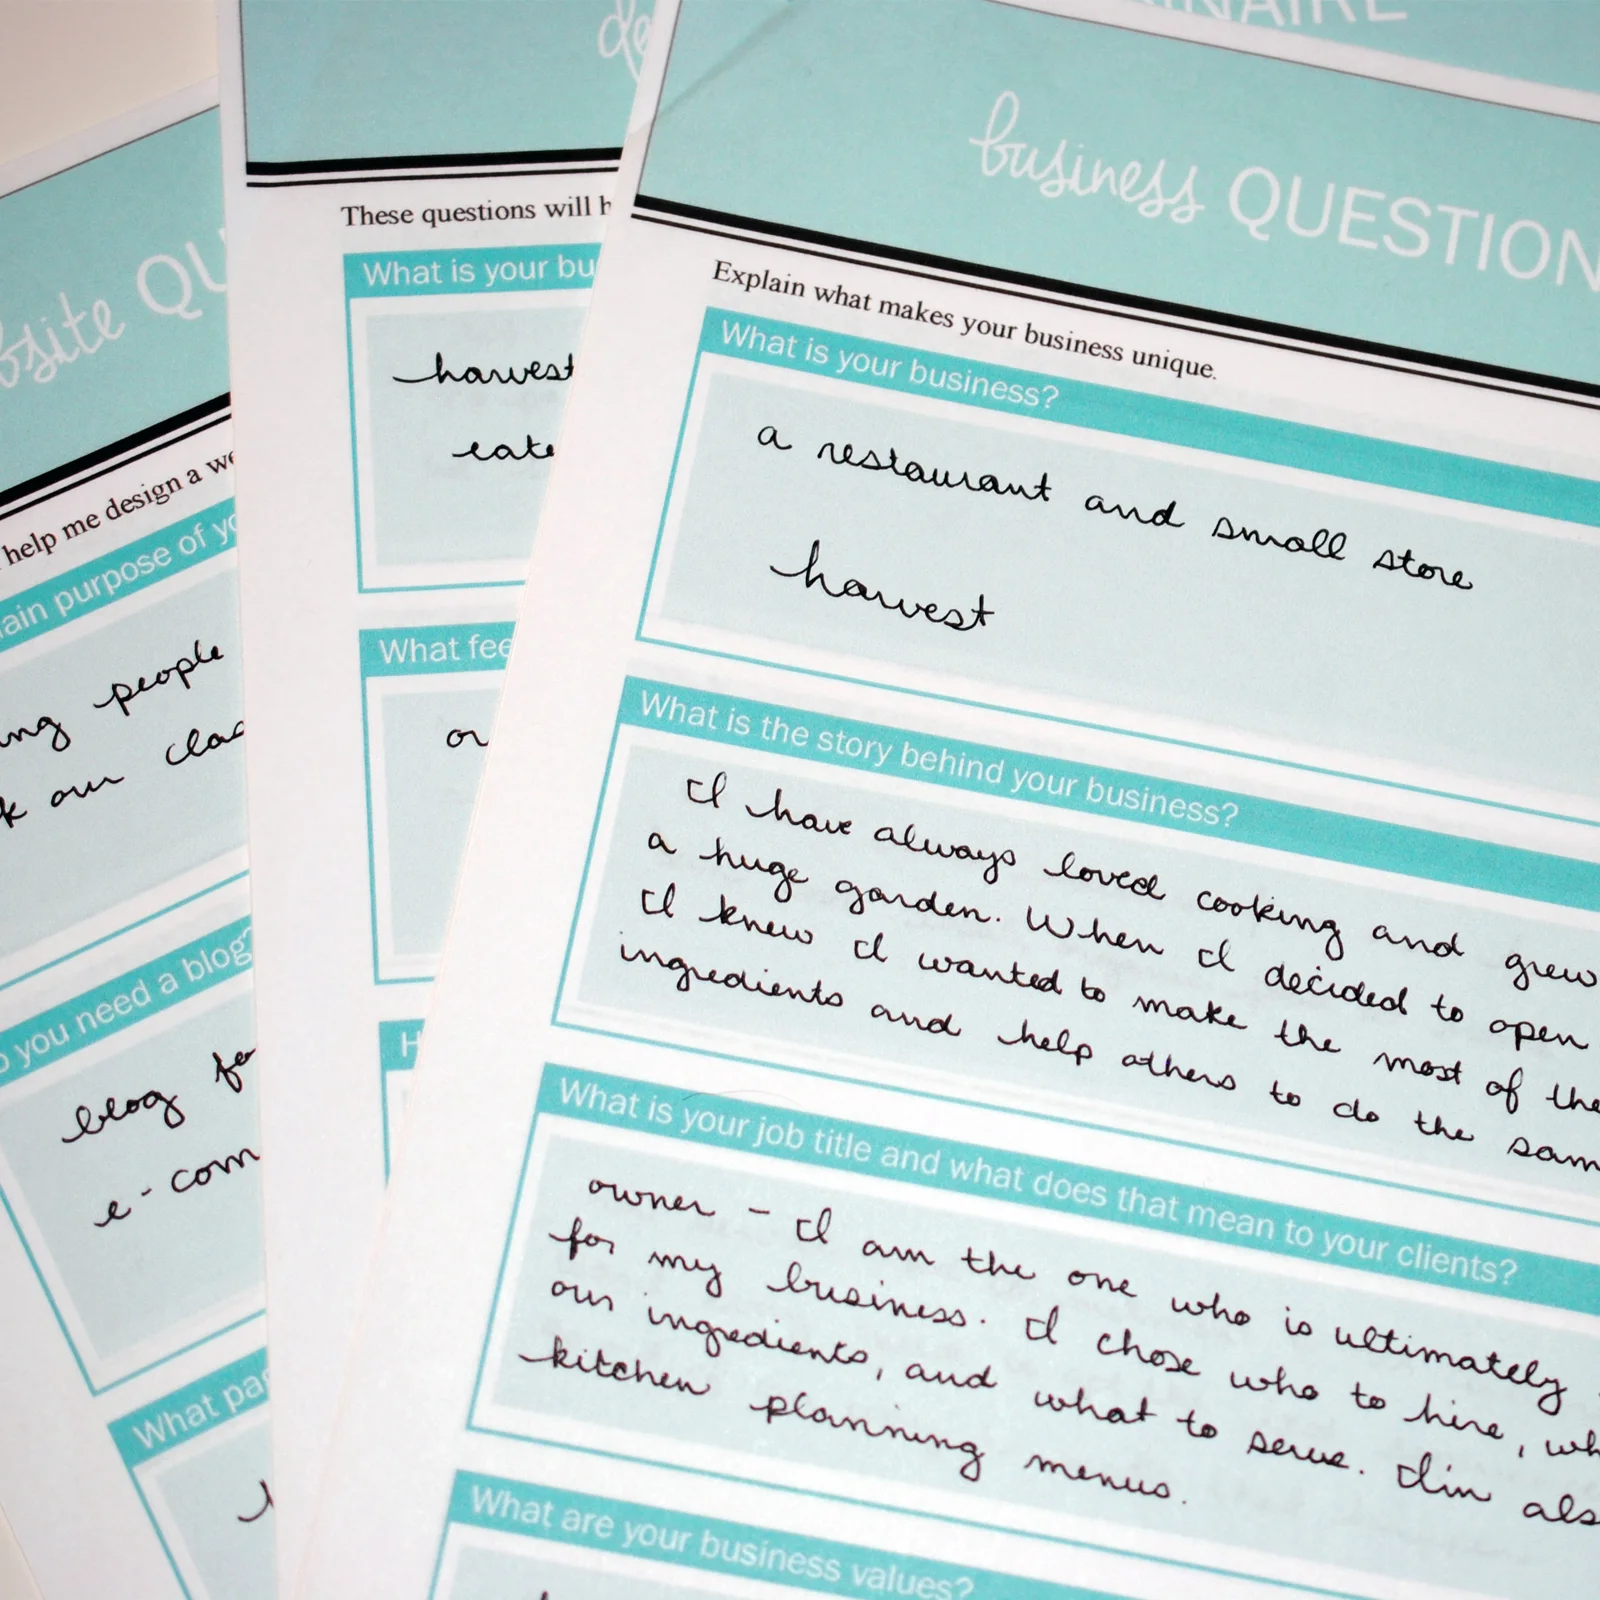 QU
These questions will
What is your
harvest
What
help me design a
purpose of
people
our
you need a blog?
blog
What
business QUESTION
Explain what makes your business unique.
What is your business?
a restaurant and small store
harvest
What is the story behind your business?
I have always loved cooking and grew
a huge garden. When I decided to open
I knew I wanted to make the most of the
ingredients and help others to do the
What is your job title and what does that mean to your clients?
owner - I am the one who is ultimately
for my business. I chose who to hire,
our ingredients, and what to serve. I'm
kitchen planning menus.
What are your business values?